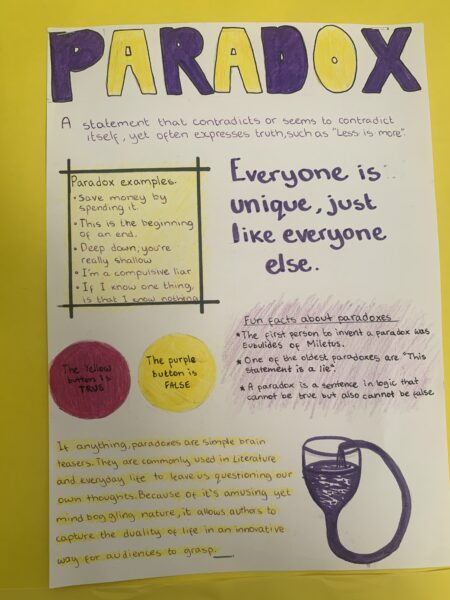 PARADOX
A statement that contradicts or seems to contradict
itself, yet often expresses truth, such as "Less is more".
Paradox examples.
• Save money by
spending it.
• This is the beginning
of an end.
• Deep down, you're
really shallow
• I'm a compulsive liar
• If I know one thing,
is that I know nothing
Everyone is
unique, just
like everyone
else.
Fun facts about paradoxes
* The first person to invent a paradox was
Eubulides of Miletus.
* One of the oldest paradoxes are "This
statement is a lie".
* A paradox is a sentence in logic that
cannot be true but also cannot be false.
The Yellow
button is
TRUE
The purple
button is
FALSE
If anything, paradoxes are simple brain
teasers. They are commonly used in Literature
and everyday life to leave us questioning our
own thoughts. Because of it's amusing yet
mind boggling nature, it allows authors to
capture the duality of life in an innovative
way for audiences to grasp.